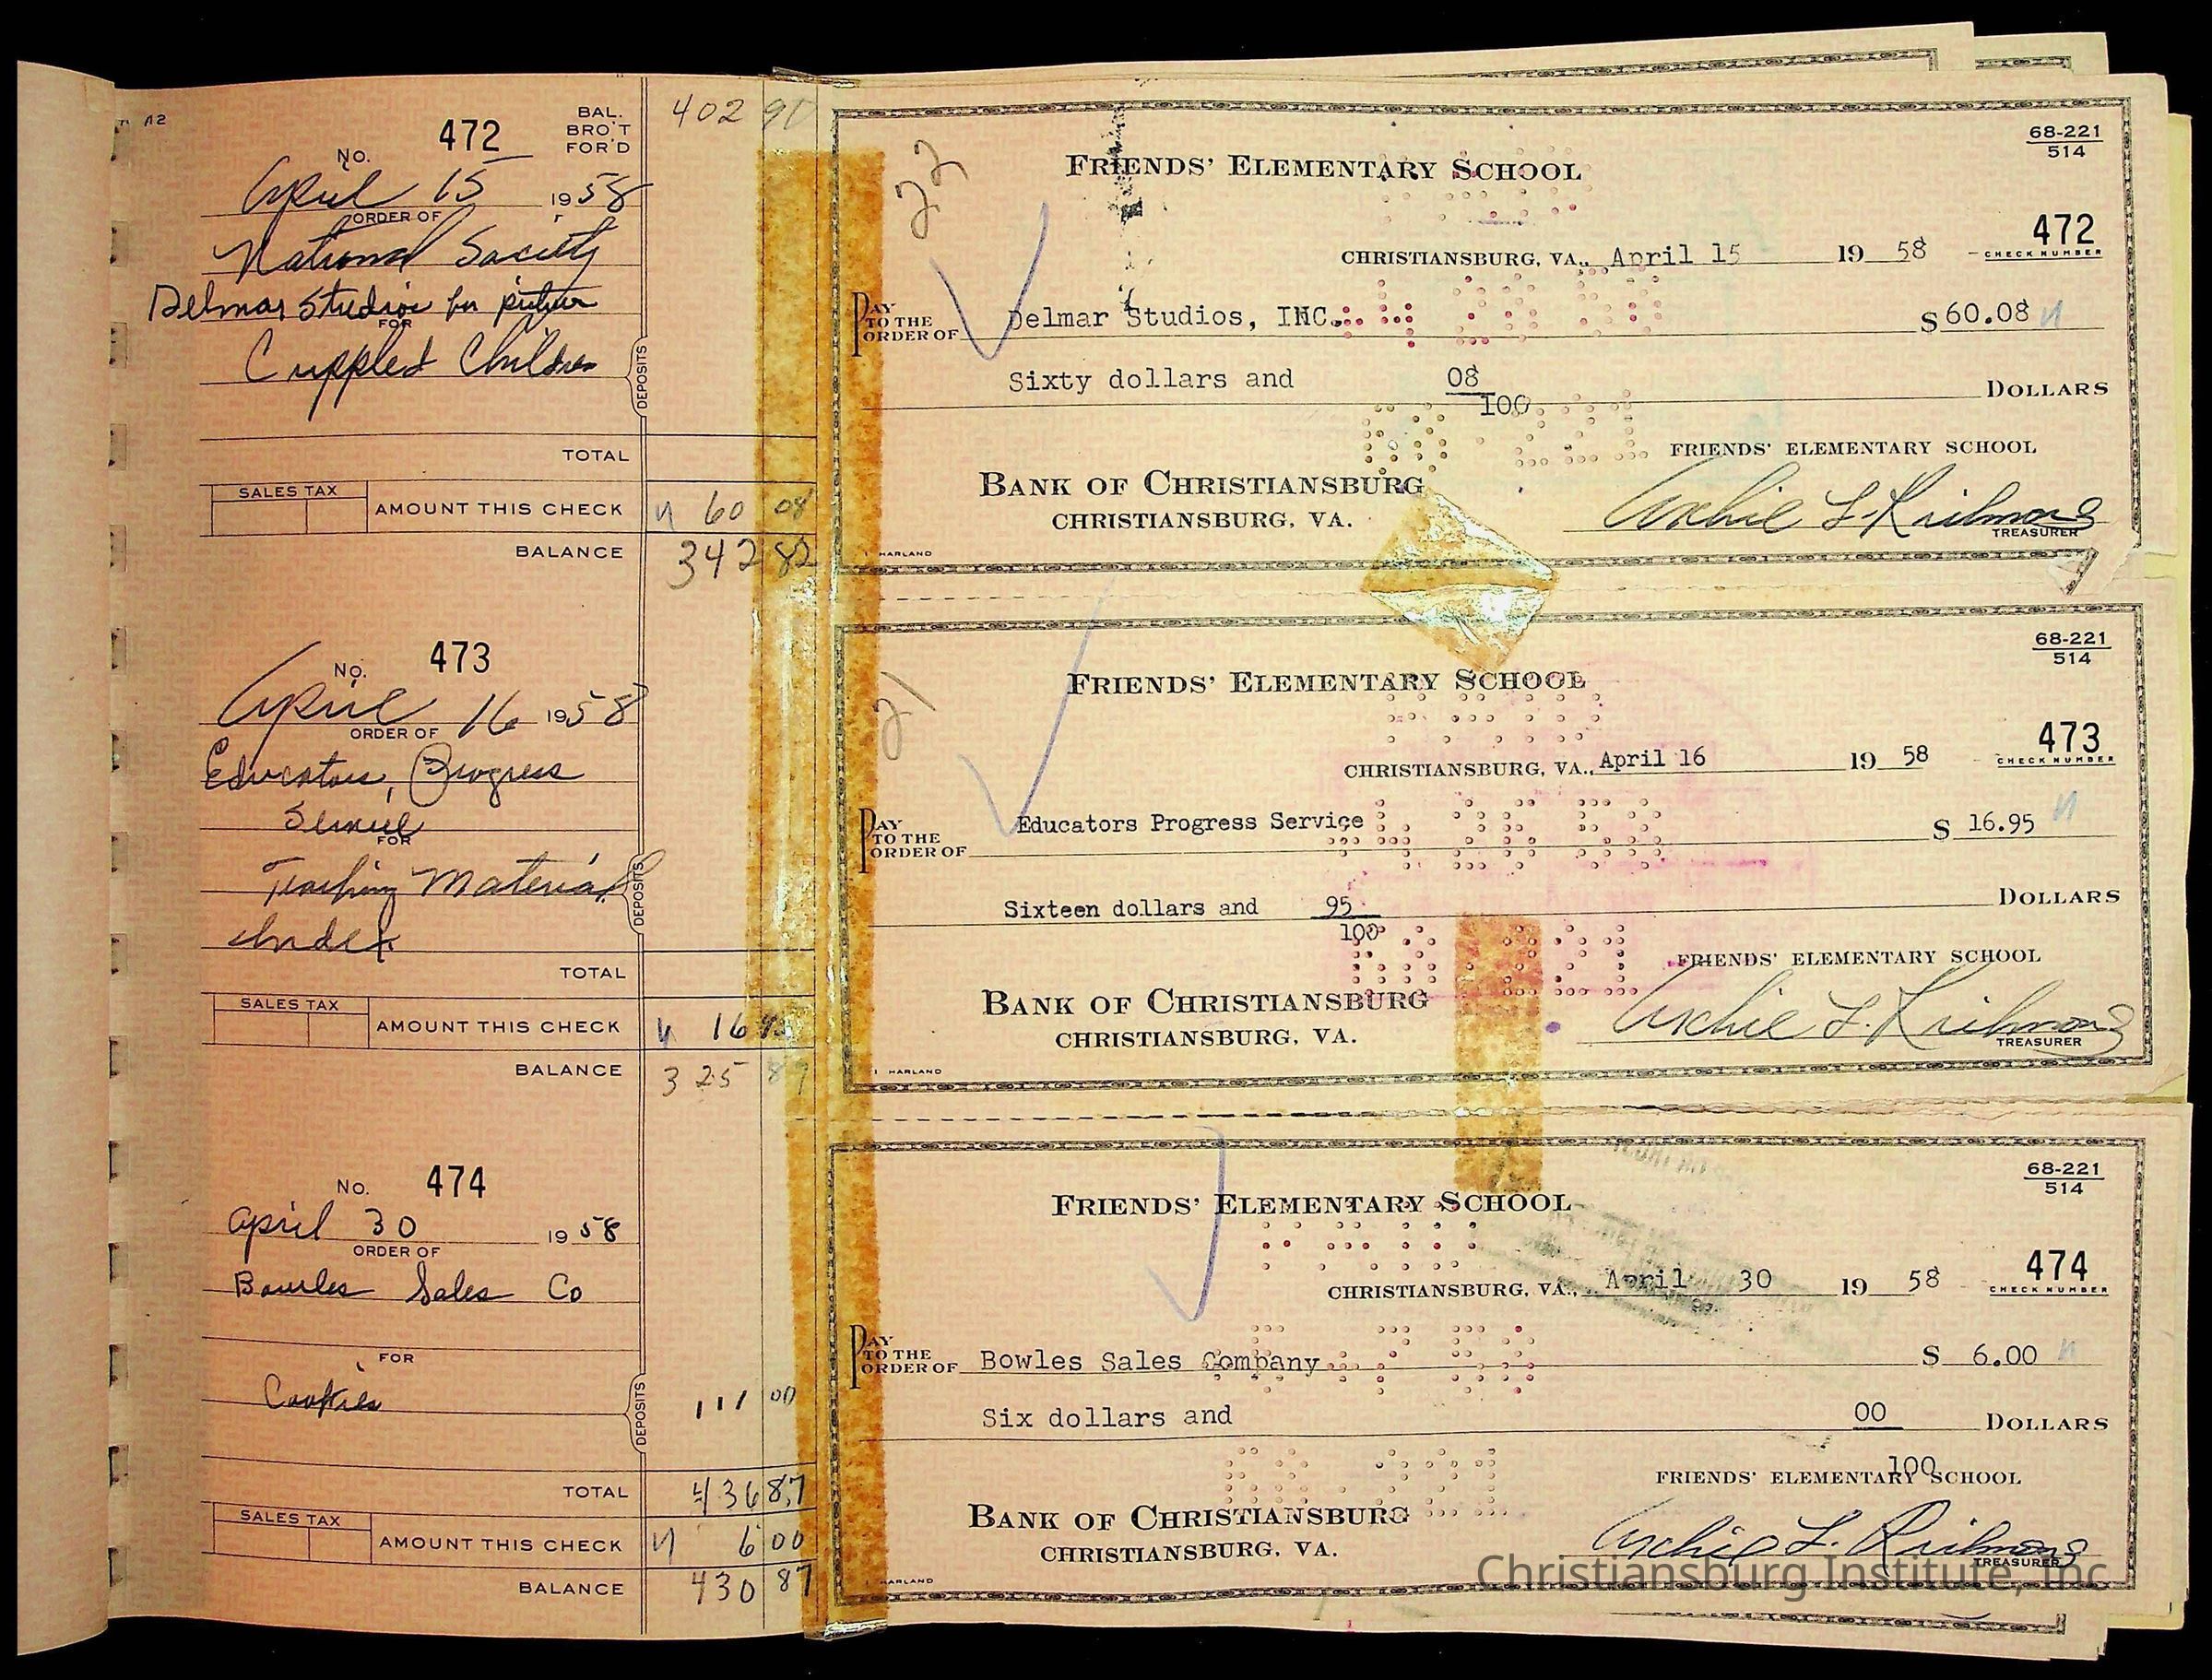 472
BAL.
BRO'T
FOR'D
402 90
No.
April 15 1958
ORDER OF
National Society
Delmar Studios for picture
FOR
Crippled Children
DEPOSITS
TOTAL
SALES TAX
AMOUNT THIS CHECK
60 08
BALANCE
342 82
473
No.
April 16 1958
ORDER OF
Educators Progress
Service
FOR
Teaching Material
Index
DEPOSITS
TOTAL
SALES TAX
AMOUNT THIS CHECK
16 95
BALANCE
325 87
No. 474
April 30 1958
ORDER OF
Bowles Sales Co
FOR
Cookies
111 00
DEPOSITS
TOTAL
436 87
SALES TAX
AMOUNT THIS CHECK
6 00
BALANCE
430 87
22
FRIENDS' ELEMENTARY SCHOOL
68-221
514
472
CHECK NUMBER
CHRISTIANSBURG, VA., April 15 19 58
PAY
TO THE
ORDER OF
Delmar Studios, INC.
$60.08
Sixty dollars and 08
100
DOLLARS
FRIENDS' ELEMENTARY SCHOOL
BANK OF CHRISTIANSBURG
CHRISTIANSBURG, VA.
Archie L. Richmond
TREASURER
HARLAND
21
FRIENDS' ELEMENTARY SCHOOL
68-221
514
473
CHECK NUMBER
CHRISTIANSBURG, VA., April 16 19 58
PAY
TO THE
ORDER OF
Educators Progress Service
$ 16.95
Sixteen dollars and 95
100
DOLLARS
FRIENDS' ELEMENTARY SCHOOL
BANK OF CHRISTIANSBURG
CHRISTIANSBURG, VA.
Archie L. Richmond
TREASURER
HARLAND
FRIENDS' ELEMENTARY SCHOOL
68-221
514
474
CHECK NUMBER
CHRISTIANSBURG, VA., April 30 19 58
PAY
TO THE
ORDER OF
Bowles Sales Company
$ 6.00
Six dollars and 00
100
DOLLARS
FRIENDS' ELEMENTARY SCHOOL
BANK OF CHRISTIANSBURG
CHRISTIANSBURG, VA.
Archie L. Richmond
TREASURER
HARLAND
Christiansburg Institute, Inc.